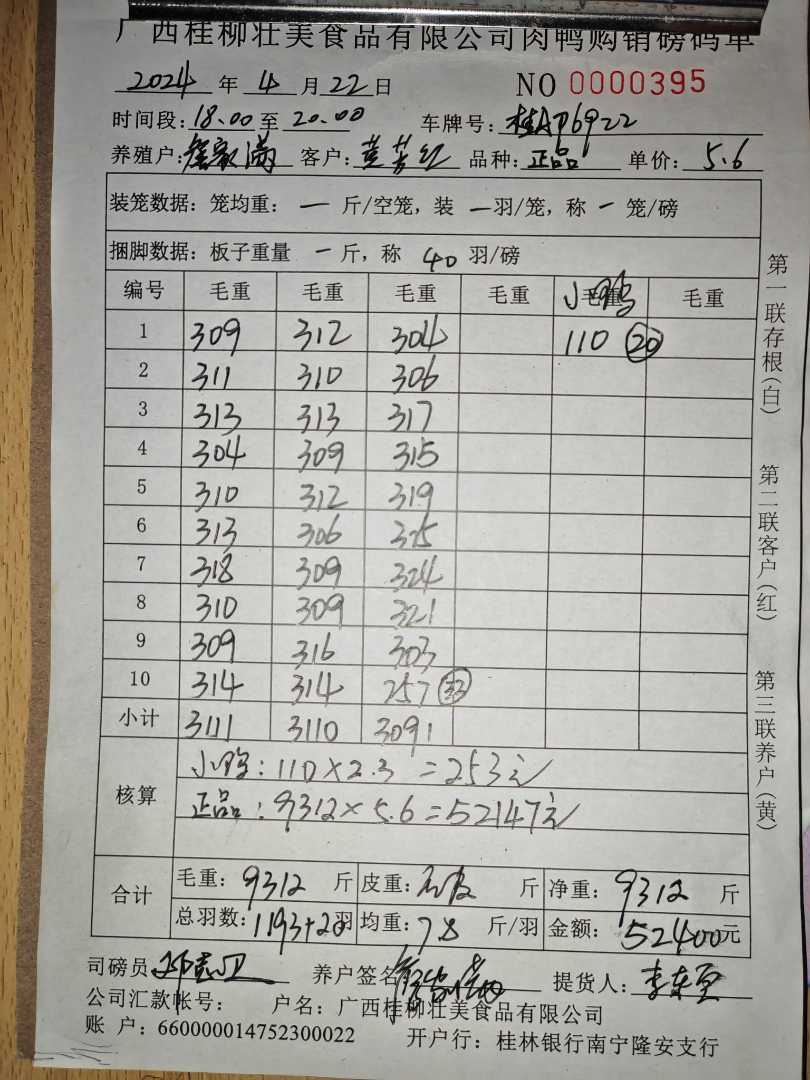 广西桂柳壮美食品有限公司肉鸭购销磅码单
2024 年 4 月 22 日 NO 0000395
时间段: 18.00 至 20.00 车牌号: 桂AP6922
养殖户: 满 客户: 黄芳红 品种: 正品 单价: 5.6
装笼数据: 笼均重: 一 斤/空笼, 装 一 羽/笼, 称 一 笼/磅
捆脚数据: 板子重量 一 斤, 称 40 羽/磅
编号 毛重 毛重 毛重 毛重 毛重 小鸭 毛重
1 309 312 304 110 (20)
2 311 310 306
3 313 313 317
4 304 309 315
5 310 312 319
6 313 306 325
7 318 309 324
8 310 309 321
9 309 316 303
10 314 314 257 (33)
小计 3111 3110 3091
核算
小鸭: 110×2.3=253元
正品: 9312×5.6=52147元
合计
毛重: 9312 斤 皮重: 斤 净重: 9312 斤
总羽数: 1193+20 羽 均重: 7.8 斤/羽 金额: 52400元
司磅员 养户签名: 提货人:
公司汇款帐号: 户名: 广西桂柳壮美食品有限公司
账 户: 660000014752300022 开户行: 桂林银行南宁隆安支行
第一联存根(白)
第二联客户(红)
第三联养户(黄)